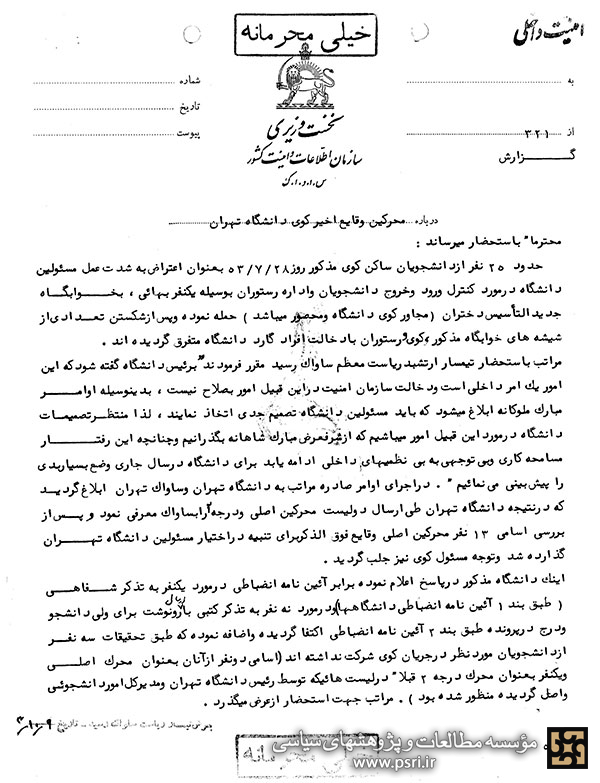 خیلی محرمانه
امنیت داخلی
به
شماره
تاریخ
از ۳۲۱
پیوست
نخست وزیری
گزارش
سازمان اطلاعات و امنیت کشور
س.ا.و.ا.ک
درباره محرکین وقایع اخیر کوی دانشگاه تهران
محترما" باستحضار میرساند :
حدود ۲۵ نفر از دانشجویان ساکن کوی مذکور روز ۵۳/۷/۲۸ بعنوان اعتراض به شدت عمل مسئولین
دانشگاه در مورد کنترل ورود و خروج دانشجویان و اداره رستوران بوسیله یکنفر بهائی ، بخوابگاه
جدید التأسیس دختران ( مجاور کوی دانشگاه و محصور میباشد ) حمله نموده و پس از شکستن تعدادی از
شیشه های خوابگاه مذکور ، کوی و رستوران با دخالت افراد گارد دانشگاه متفرق گردیده اند .
مراتب باستحضار تیمسار ارتشبد ریاست معظم ساواک رسید مقرر فرمودند " برئیس دانشگاه گفته شود که این
امور یک امر داخلی است و دخالت سازمان امنیت در این قبیل امور بصلاح نیست ، بدینوسیله اوامر
مبارک ملوکانه ابلاغ میشود که باید مسئولین دانشگاه تصمیم جدی اتخاذ نمایند ، لذا منتظر تصمیمات
دانشگاه در مورد این قبیل امور میباشیم که از شرفعرض مبارک شاهانه بگذرانیم و چنانچه این رفتار
مسامحه کاری و بی توجهی به بی نظمیهای داخلی ادامه یابد برای دانشگاه در سال جاری وضع بسیار بدی
را پیش بینی می نمائیم " . در اجرای اوامر صادره مراتب به دانشگاه تهران و ساواک تهران ابلاغ گردید
که در نتیجه دانشگاه تهران طی ارسال دو لیست محرکین اصلی و درجه ۲ را بساواک معرفی نمود و پس از
بررسی اسامی ۱۳ نفر محرکین اصلی وقایع فوق الذکر برای تنبیه در اختیار مسئولین دانشگاه تهران
گذارده شد و توجه مسئول کوی نیز جلب گردید .
اینک دانشگاه مذکور در پاسخ اعلام نموده برابر آئین نامه انضباطی در مورد یکنفر به تذکر شفاهی
( طبق بند ۱ آئین نامه انضباطی دانشگاهها ) و در مورد نه نفر به تذکر کتبی با ارسال رونوشت برای ولی دانشجو
و درج در پرونده طبق بند ۲ آئین نامه انضباطی اکتفا گردیده و اضافه نموده که طبق تحقیقات سه نفر
از دانشجویان مورد نظر در جریان کوی شرکت نداشته اند ( اسامی دو نفر از آنان بعنوان محرک اصلی
و یکنفر بعنوان محرک درجه ۲ قبلا" در لیست هائیکه توسط رئیس دانشگاه تهران و مدیر کل امور دانشجوئی
واصل گردیده منظور شده بود ) . مراتب جهت استحضار از عرض میگذرد .
بعرض تیمسار ریاست ساواک رسید - تاریخ
خیلی محرمانه
مؤسسه مطالعات و پژوهشهای سیاسی
www.psri.ir